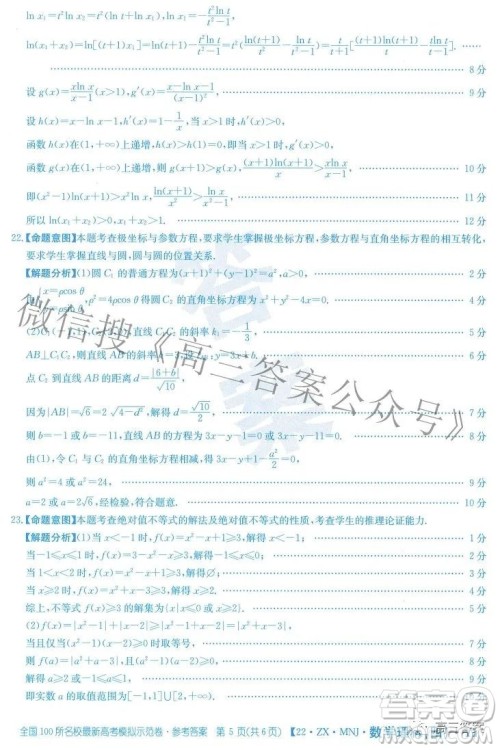 ln x₁=t²ln x₂=t²(ln t+ln x₁), ln x₁=-t²ln t/(t²-1),
ln(x₁+x₂)=ln[(t+1)x₁]=ln(t+1)-t²ln t/(t²-1)=t²(ln(t+1)/t²-ln t/(t²-1))=t/(t+1)[(t+1)ln(t+1)/t-t²ln t²/(t²-1)
8 分
设 g(x)=xln x/(x-1)(x>1),g′(x)=(x-ln x-1)/(x-1)²,
9 分
设 h(x)=x-ln x-1,h′(x)=1-1/x,当 x>1 时,h′(x)>0,
函数 h(x)在(1,+∞)上递增,h(x)>h(1)=0,即当 x>1 时,g′(x)>0,
函数 g(x)在(1,+∞)上递增,则 g(x+1)>g(x),(x+1)ln(x+1)/x>xln x/(x-1),
10 分
即(x²-1)ln(x+1)>x²ln x,ln(x+1)/x²>ln x/(x²-1),
11 分
所以 ln(x₁+x₂)>0,x₁+x₂>1.
12 分
22.【命题意图】本题考查极坐标与参数方程,要求学生掌握极坐标方程,参数方程与直角坐标方程的相互转化,
要求掌握直线与圆,圆与圆的位置关系.
【解题分析】(1)圆 C₁ 的普通方程为(x+1)²+(y-1)²=a²,
2 分
由{x=ρcos θ, y=ρsin θ,ρ²=4ρcos θ 得圆 C₂ 的直角坐标方程为 x²+y²-4x=0.
4 分
(2)C₁(-1,1),C₂(2,0),直线 C₁C₂ 的斜率 k₁=-1/3,
5 分
AB⊥C₁C₂,则直线 AB 的斜率 k=3,设 l_AB:y=3x+b,
点 C₂ 到直线 AB 的距离 d=|6+b|/√10,
因为|AB|=√6=2√(4-d²),则 d=√10/2,
7 分
则 b=-1 或 b=-11,直线 AB 的方程为 3x-y-1=0 或 3x-y-11=0.
8 分
由(1),令 C₁ 与 C₂ 的直角坐标方程相减,得 3x-y+1-a²/2=0,
则 a²=4 或 a²=24,
9 分
a=2 或 a=2√6,经检验,符合题意.
10 分
23.【命题意图】本题考查绝对值不等式的解法及绝对值不等式的性质,考查学生的推理论证能力.
【解题分析】(1)当 x<-1 时,f(x)=1-x-x-1≥3,解得
1 分
当-1≤x≤1 时,f(x)=3-x²-x≥3,解得-1≤x≤0;
2 分
当 1<x<2 时,f(x)=x²-x+1≥3,解得∅;
3 分
当 x≥2 时,f(x)=x-1+x≥3,解得 x≥2.
4 分
综上,不等式 f(x)≥3 的解集为{x|x≤0或x≥2}.
5 分
(2)f(x)=|x²-1|+|x-2|≥|x²-1-x+2|=|x²-x+1|,
当且仅当(x²-1)(x-2)≤0 时取等号,
7 分
则 f(a)=|a²-a+1|,且(a²-1)(a-2)≤0,
8 分
9 分
即实数 a 的取值范围为[-1,1]∪[2,+∞).
全国 100 所名校最新高考模拟示范卷·参考答案 第 5 页(共 6 页) 【22·ZX·MNJ·数学
微信搜《高三答案公众号》
答案
高三答案